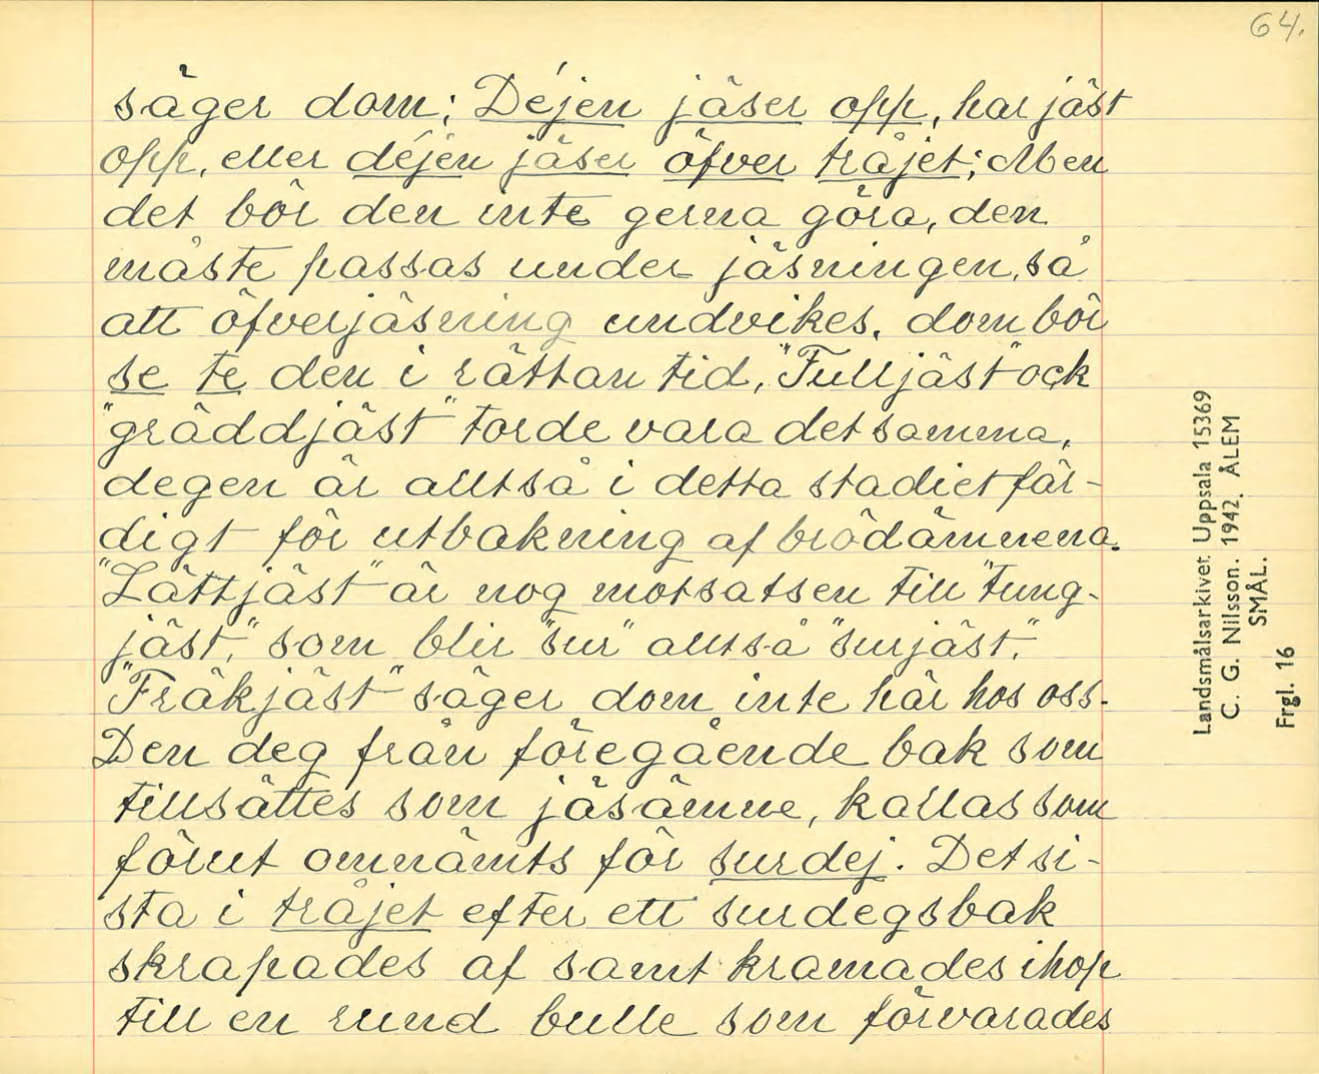 64.
säger dom; Déjen jäser opp, har jäst
opp, eller déjen jäser öfver tråjet; Men
det bör den inte gerna göra, den
måste passas under jäsningen, så
att öfverjäsning undvikes, dom bör
se te den i rättan tid, "Fulljäst" ock
"gräddjäst" torde vara detsamma,
degen är alltså i detta stadiet fär-
digt för utbakning af brödämnena.
"Lättjäst" är nog motsatsen till "tung-
jäst," som blir "sur" alltså "surjäst."
"Fräkjäst" säger dom inte här hos oss.
Den deg från föregående bak som
tillsättes som jäsämne, kallas som
förut omnämts för surdej. Det si-
sta i tråjet efter ett surdegsbak
skrapades af samt kramades ihop
till en rund bulle som förvarades
Landsmålsarkivet Uppsala 15369
C. G. Nilsson. 1942. ÅLEM
SMÅL.
Frgl. 16